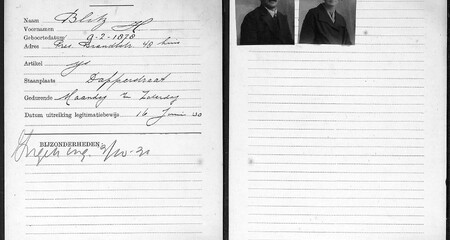 Naam Blitz
Voornamen H.
Geboortedatum 9-2-1870
Adres Pres. Brandtstr. 48 huis
Artikel ijs
Staanplaats Dapperstraat
Gedurende Maandag t/m Zaterdag
Datum uitreiking legitimatiebewijs 16 Juni 30
BIJZONDERHEDEN